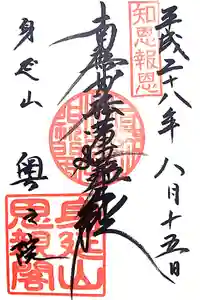 知恩報恩
平成二十八年八月十五日
南無妙法蓮華経
身延山
奥之院
身延山
思親閣